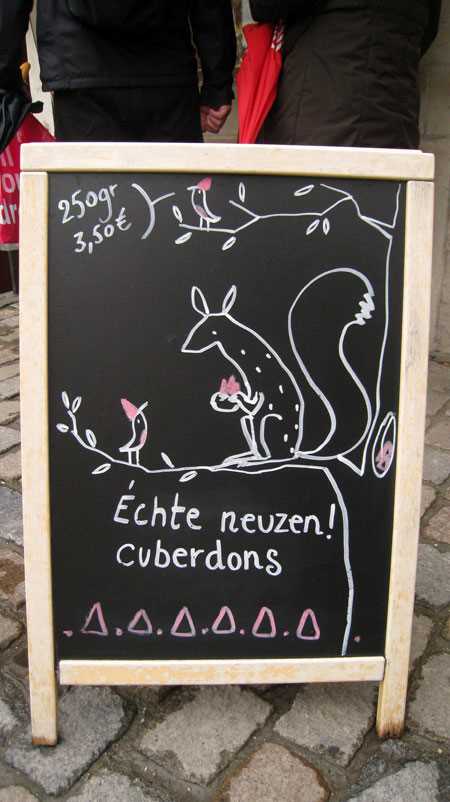 250gr
3,50€
Échte neuzen!
cuberdons